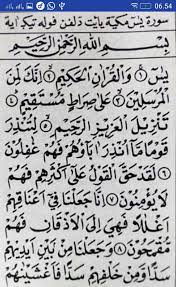 06.54
سورة يس مكية يايت دلفن فوله تيك اية
بِسْمِ اللهِ الرَّحْمٰنِ الرَّحِيْمِ
يس ۝ وَالْقُرْاٰنِ الْحَكِيْمِ ۝ اِنَّكَ لَمِنَ
الْمُرْسَلِيْنَ ۝ عَلٰى صِرَاطٍ مُسْتَقِيْمٍ ۝
تَنْزِيْلَ الْعَزِيْزِ الرَّحِيْمِ ۝ لِتُنْذِرَ
قَوْمًا مَا اُنْذِرَ اٰبَاؤُهُمْ فَهُمْ غٰفِلُوْنَ
۝ لَقَدْ حَقَّ الْقَوْلُ عَلٰى اَكْثَرِهِمْ فَهُمْ
لَا يُؤْمِنُوْنَ ۝ اِنَّا جَعَلْنَا فِيْ اَعْنَاقِهِمْ
اَغْلَالًا فَهِيَ اِلَى الْاَذْقَانِ فَهُمْ
مُقْمَحُوْنَ ۝ وَجَعَلْنَا مِنْ بَيْنِ اَيْدِيْهِمْ
سَدًّا وَمِنْ خَلْفِهِمْ سَدًّا فَاَغْشَيْنٰهُمْ